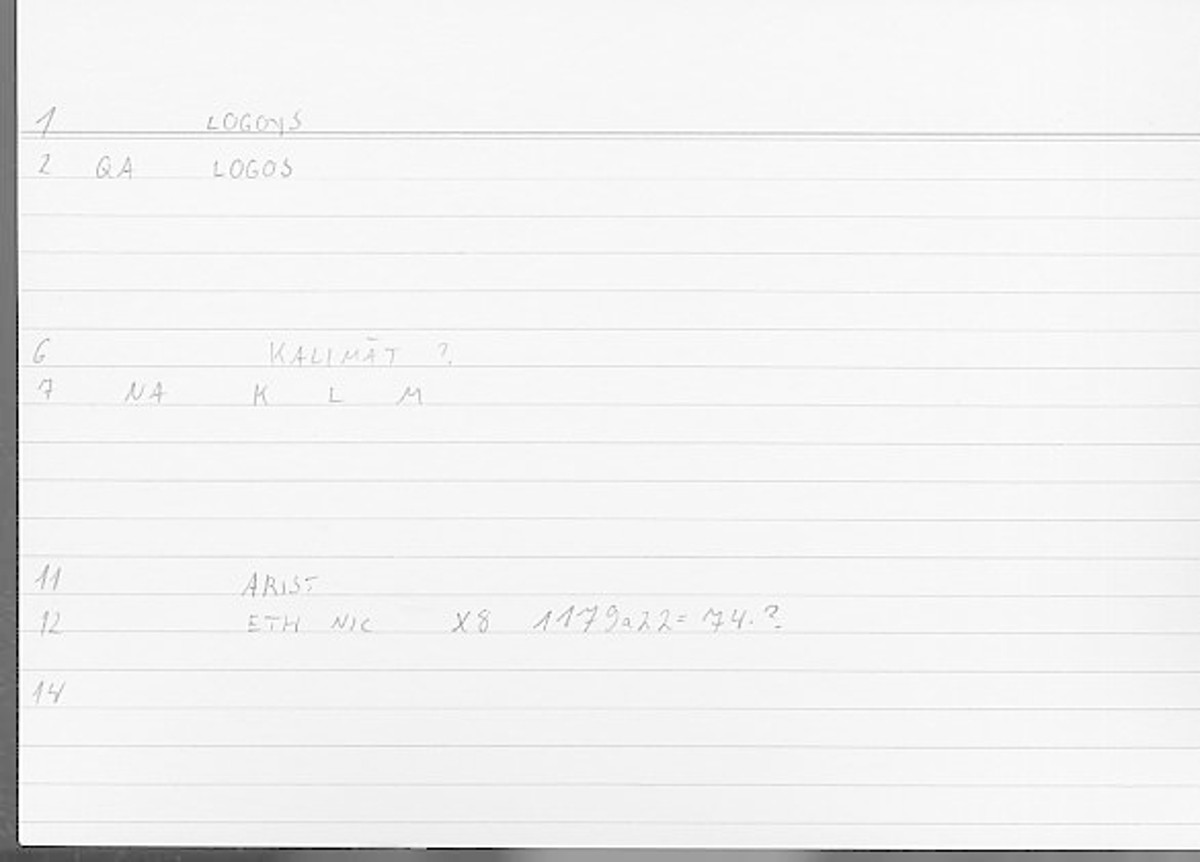 1 LOGOYS
2 QA LOGOS
6 KALIMĀT ?
7 NA K L M
11 ARIST
12 ETH NIC X8 1179a22= 74.?
14